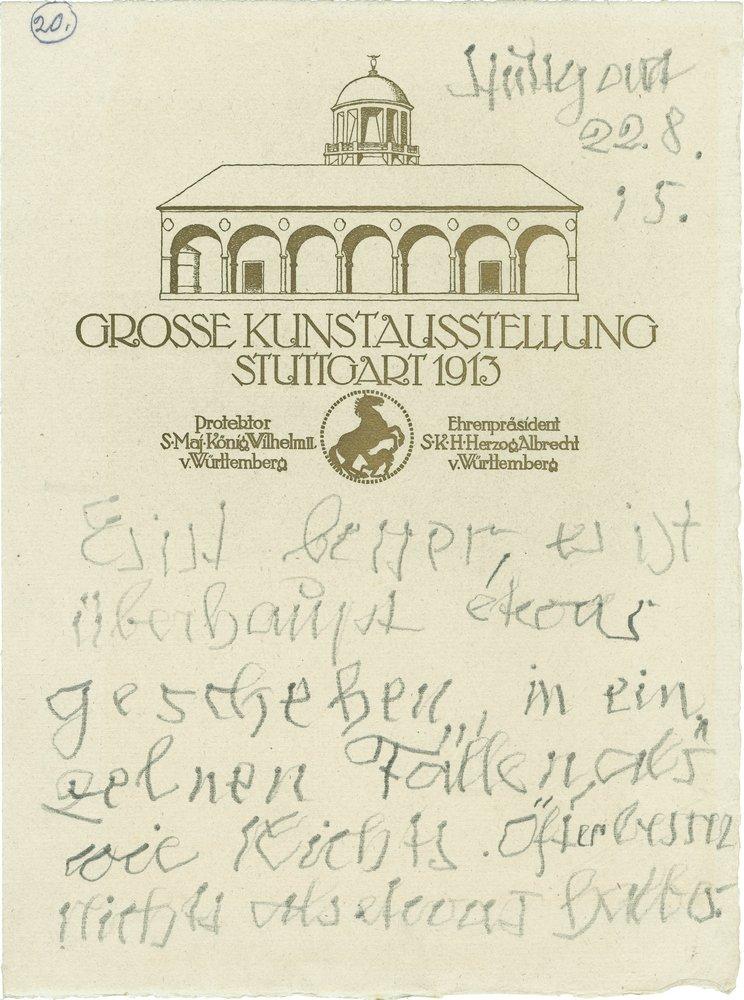 20.
Stuttgart
22.8.
15.
GROSSE KUNSTAUSSTELLUNG
STUTTGART 1913
Protektor
S·Maj·König Wilhelm II.
v. Württemberg
Ehrenpräsident
S·K·H·Herzog Albrecht
v. Württemberg
Es ist besser, es ist
überhaupt etwas
geschehen, in ein
zelnen Fällen, als
wie Nichts. Öfter besser
nichts als etwas halbs.